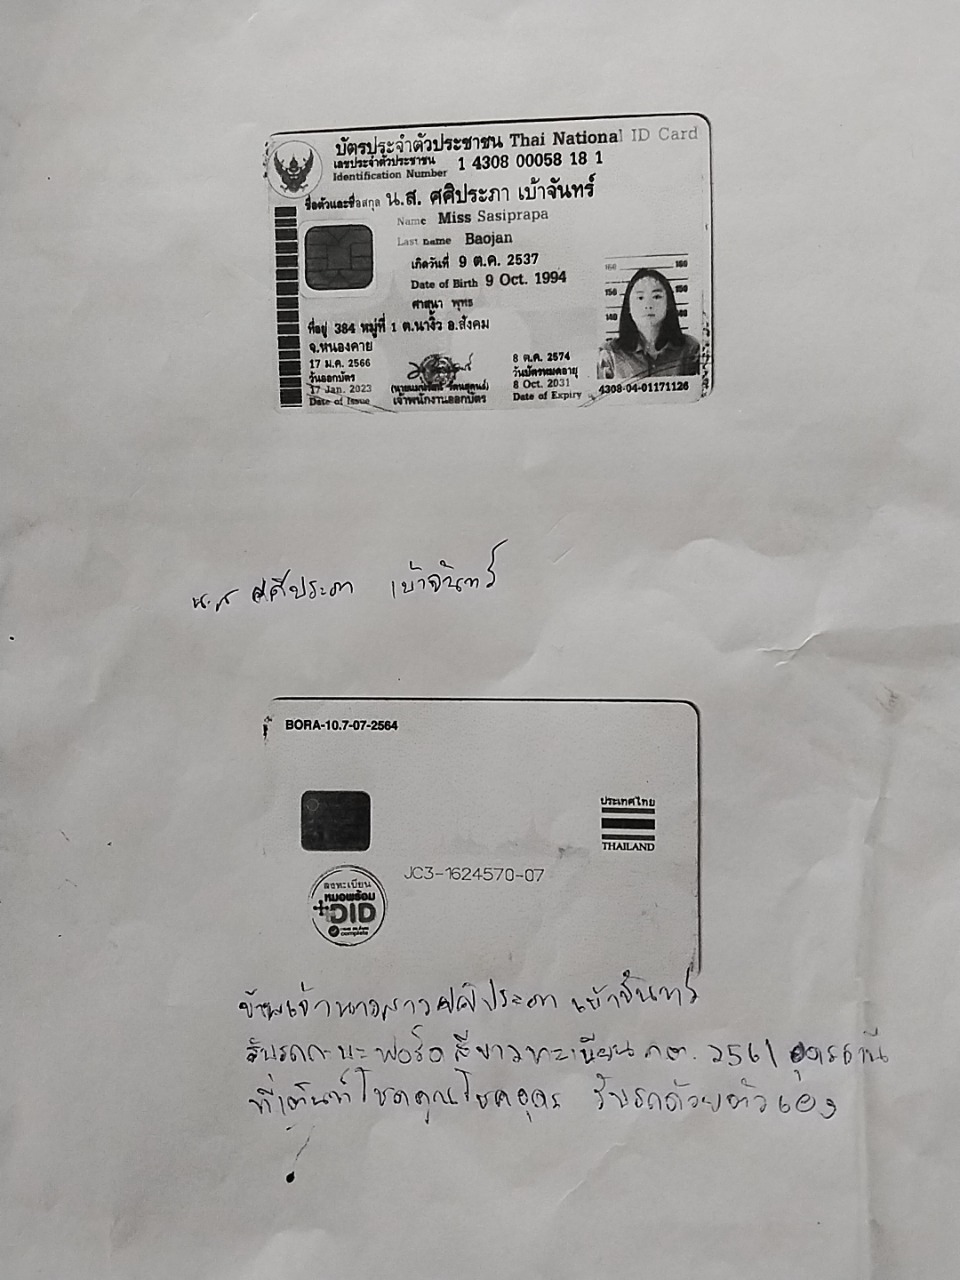 บัตรประจำตัวประชาชน Thai National ID Card
เลขประจำตัวประชาชน 1 4308 00058 18 1
Identification Number
ชื่อตัวและชื่อสกุล น.ส. ศศิประภา เบ้าจันทร์
Name Miss Sasiprapa
Last name Baojan
เกิดวันที่ 9 ต.ค. 2537
Date of Birth 9 Oct. 1994
ศาสนา พุทธ
ที่อยู่ 384 หมู่ที่ 1 ต.นางิ้ว อ.สังคม
จ.หนองคาย
17 ม.ค. 2566
วันออกบัตร
17 Jan. 2023
Date of Issue
เจ้าพนักงานออกบัตร
8 ต.ค. 2574
วันบัตรหมดอายุ
8 Oct. 2031
Date of Expiry
160 160
150 150
140
4308-04-01171126
น.ส ศศิประภา เบ้าจันทร์
BORA-10.7-07-2564
ประเทศไทย
THAILAND
JC3-1624570-07
ลงทะเบียน
หมอพร้อม
DID
complete
ข้าพเจ้านางสาวศศิประภา เบ้าจันทร์
รับรถกะบะฟอร์ด สีขาวทะเบียน กต. 2561 อุดรธานี
ที่เต็นท์โชคคูณโชคอุดร รับรถด้วยตัวเอง